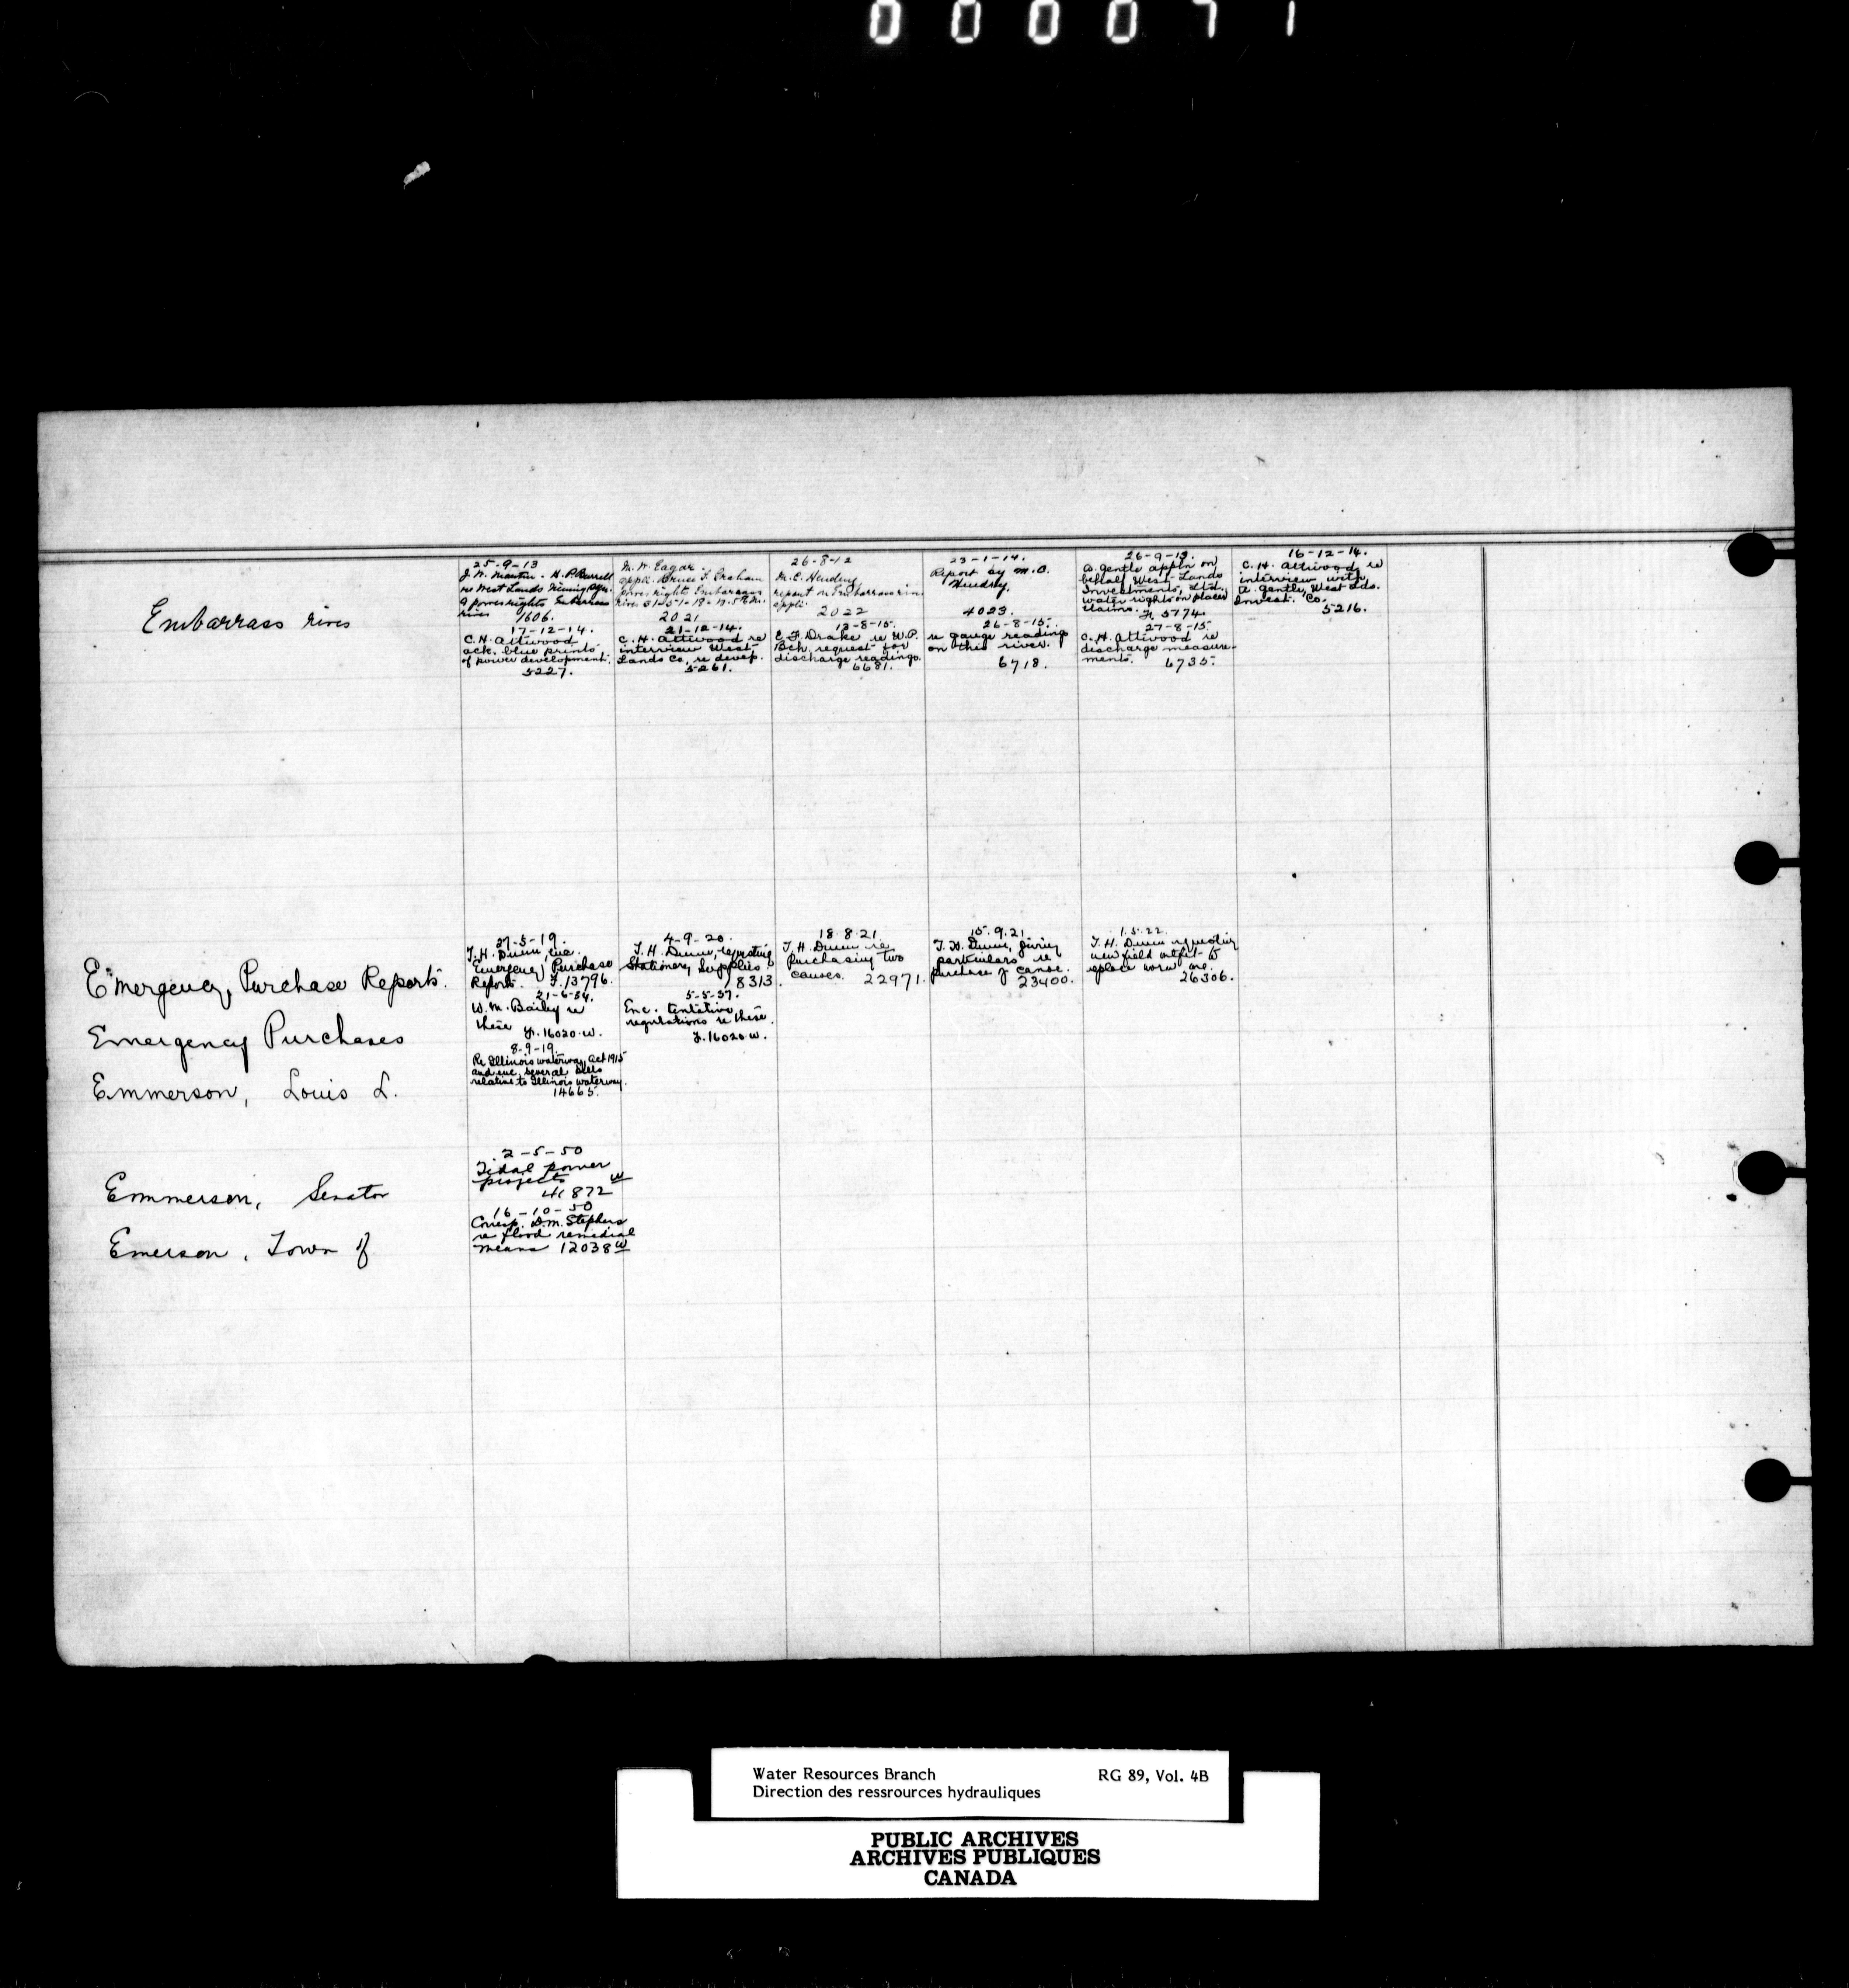 000071
Embarrass river
25-9-13
J. W. Martin. H. P. Burrell
re West Lands Mining
power rights Embarrass
river 1606.
M. W. Eagar
appli. Bruce F. Graham
power rights Embarrass
river 31-51-18-19-5th M.
2021
26-8-12
M. C. Hendry
report on Embarrass river
appli.
2022
23-1-14.
Report by M. C.
Hendry.
4023.
26-9-13.
A. Gentle appl'n on
behalf West Lands
Investments, Ltd.
water rights on placer
claims. F. 3774.
16-12-14.
C. H. Attwood re
interview with
A. Gentle, West Lds.
Invest. Co.
5216.
17-12-14.
C. H. Attwood
ack. blue prints
of power development.
5227.
21-12-14.
C. H. Attwood re
interview West
Lands Co, re devep.
5261.
13-8-15.
E. F. Drake re W. P.
Bch. request for
discharge readings.
6681.
26-8-15.
re gauge readings
on this river.
6718.
27-8-15.
C. H. Attwood re
discharge measure-
ments. 6735.
Emergency, Purchase Reports.
27-5-19.
T. H. Dunn, enc.
Emergency Purchase
Reports. F. 13796.
4-9-20.
T. H. Dunn, requesting
Stationery Supplies.
18313.
18.8.21
T. H. Dunn re
purchasing two
canoes. 22971.
15.9.21
T. H. Dunn, giving
particulars re
purchase of canoe.
23400.
1.5.22.
T. H. Dunn requesting
new field outfit to
replace worn one.
26306.
Emergency Purchases
21-6-34.
W. M. Bailey re
these F. 16020.W.
5-5-37.
Enc. tentative
regulations re these.
F. 16020 W.
Emmerson, Louis L.
8-9-19.
Re Illinois waterway Act 1915
and enc. several bills
relative to Illinois waterway.
14665.
Emmerson, Senator
2-5-50
Tidal power
projects
41872 W
Emerson, Town of
16-10-50
Corresp. D. M. Stephens
re flood remedial
means 12038 W
Water Resources Branch RG 89, Vol. 4B
Direction des ressrources hydrauliques
PUBLIC ARCHIVES
ARCHIVES PUBLIQUES
CANADA